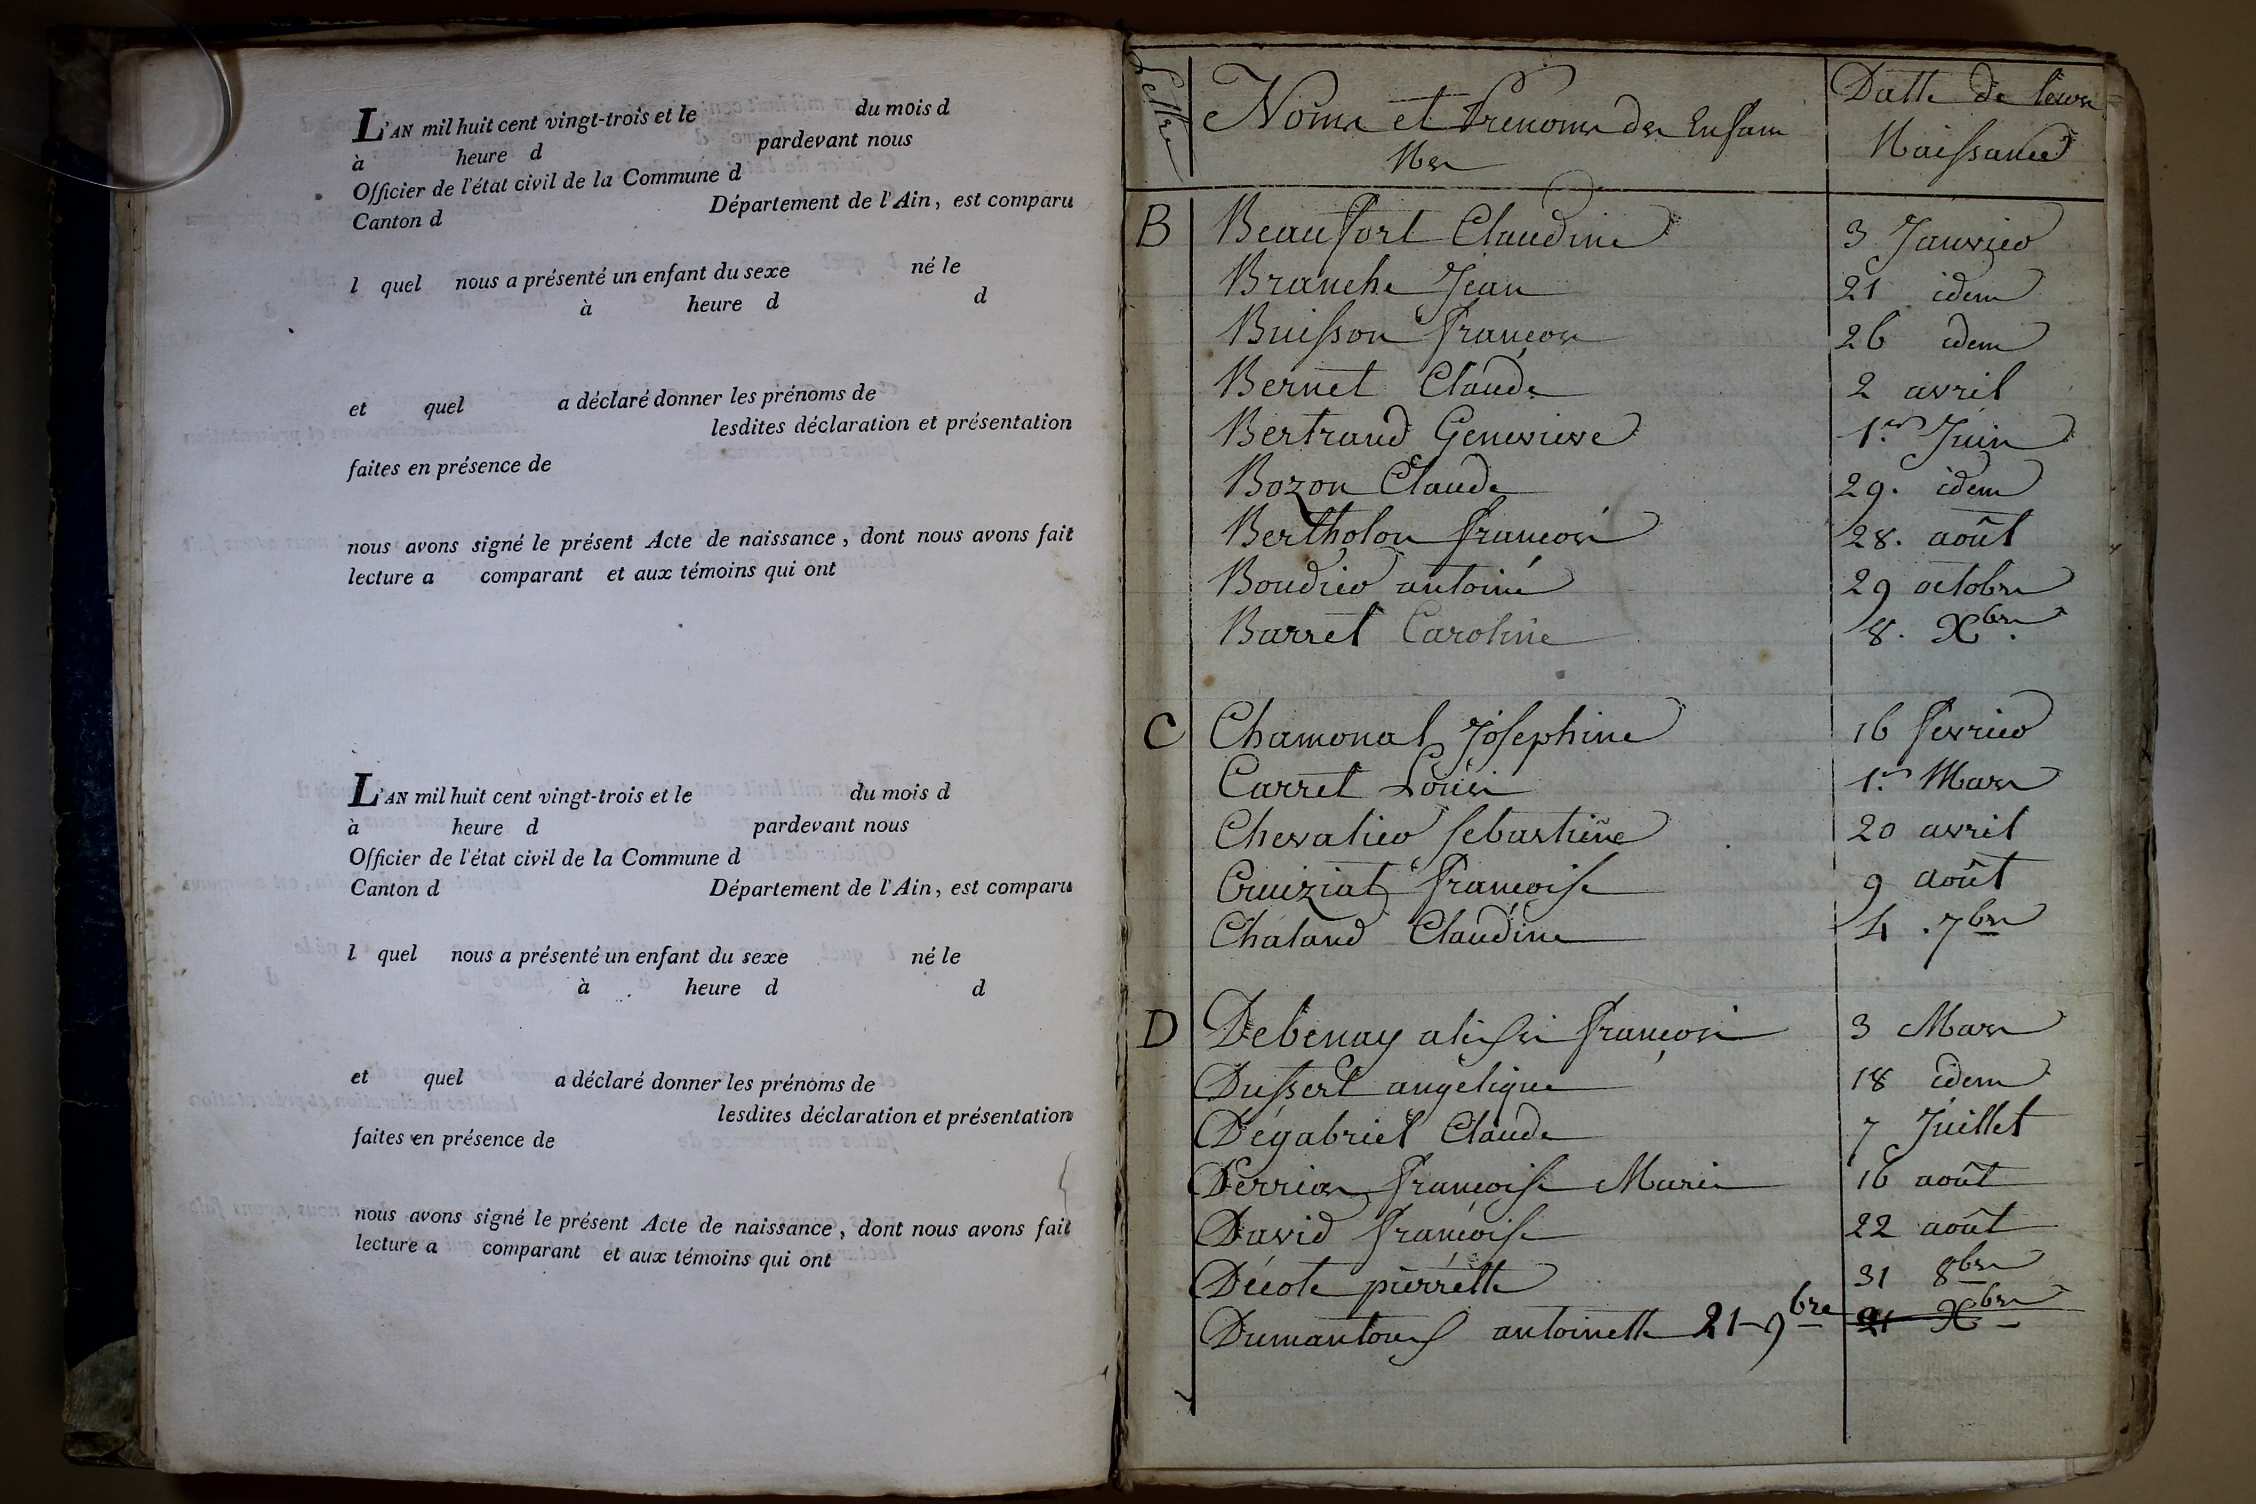 L'AN mil huit cent vingt-trois et le du mois d
à heure d pardevant nous
Officier de l'état civil de la Commune d
Canton d Département de l'Ain, est comparu
l quel nous a présenté un enfant du sexe né le
à heure d d
et quel a déclaré donner les prénoms de
lesdites déclaration et présentation
faites en présence de
nous avons signé le présent Acte de naissance, dont nous avons fait
lecture a comparant et aux témoins qui ont
L'AN mil huit cent vingt-trois et le du mois d
à heure d pardevant nous
Officier de l'état civil de la Commune d
Canton d Département de l'Ain, est comparu
l quel nous a présenté un enfant du sexe né le
à heure d d
et quel a déclaré donner les prénoms de
lesdites déclaration et présentation
faites en présence de
nous avons signé le présent Acte de naissance, dont nous avons fait
lecture a comparant et aux témoins qui ont
Lettre Noms et Prenoms des Enfans Datte de leurs
Nés Naissances
B Beaufort Claudine 3 Janvier
Branche Jean 21 idem
Buisson françois 26 idem
Bernet Claude 2 avril
Bertrand Genevieve 1.er Juin
Bozon Claude 29. idem
Bertholon françois 28. août
Boudier antoine 29 octobre
Barret Caroline 8. Xbre
C Chamonal Josephine 16 fevrier
Carret Louis 1.er Mars
Chevalier sebastiene 20 avril
Cruiziat françoise 9 août
Chaland Claudine 4 . 7bre
D Debenay françois 3 Mars
Dussert angelique 18 idem
Dégabriel Claude 7 Juillet
Derrias françoise Marie 16 août
David françoise 22 août
Décote pierrette 31 8bre
Dumantous antoinette 21 9bre 21 Xbre